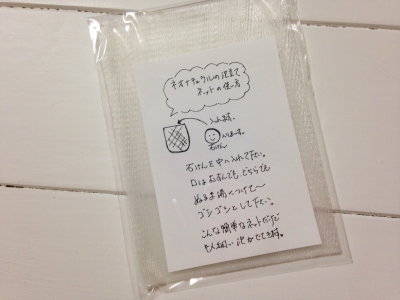 ネオナチュラルの泡立て
ネットの使い方
入れます。
石けん
石けんを中に入れて下さい。
口はむすんでも どちらでも
ぬるま湯につけて〜
ゴシゴシとして下さい。
こんな簡単なネットだけど
きめ細かい 泡ができます。